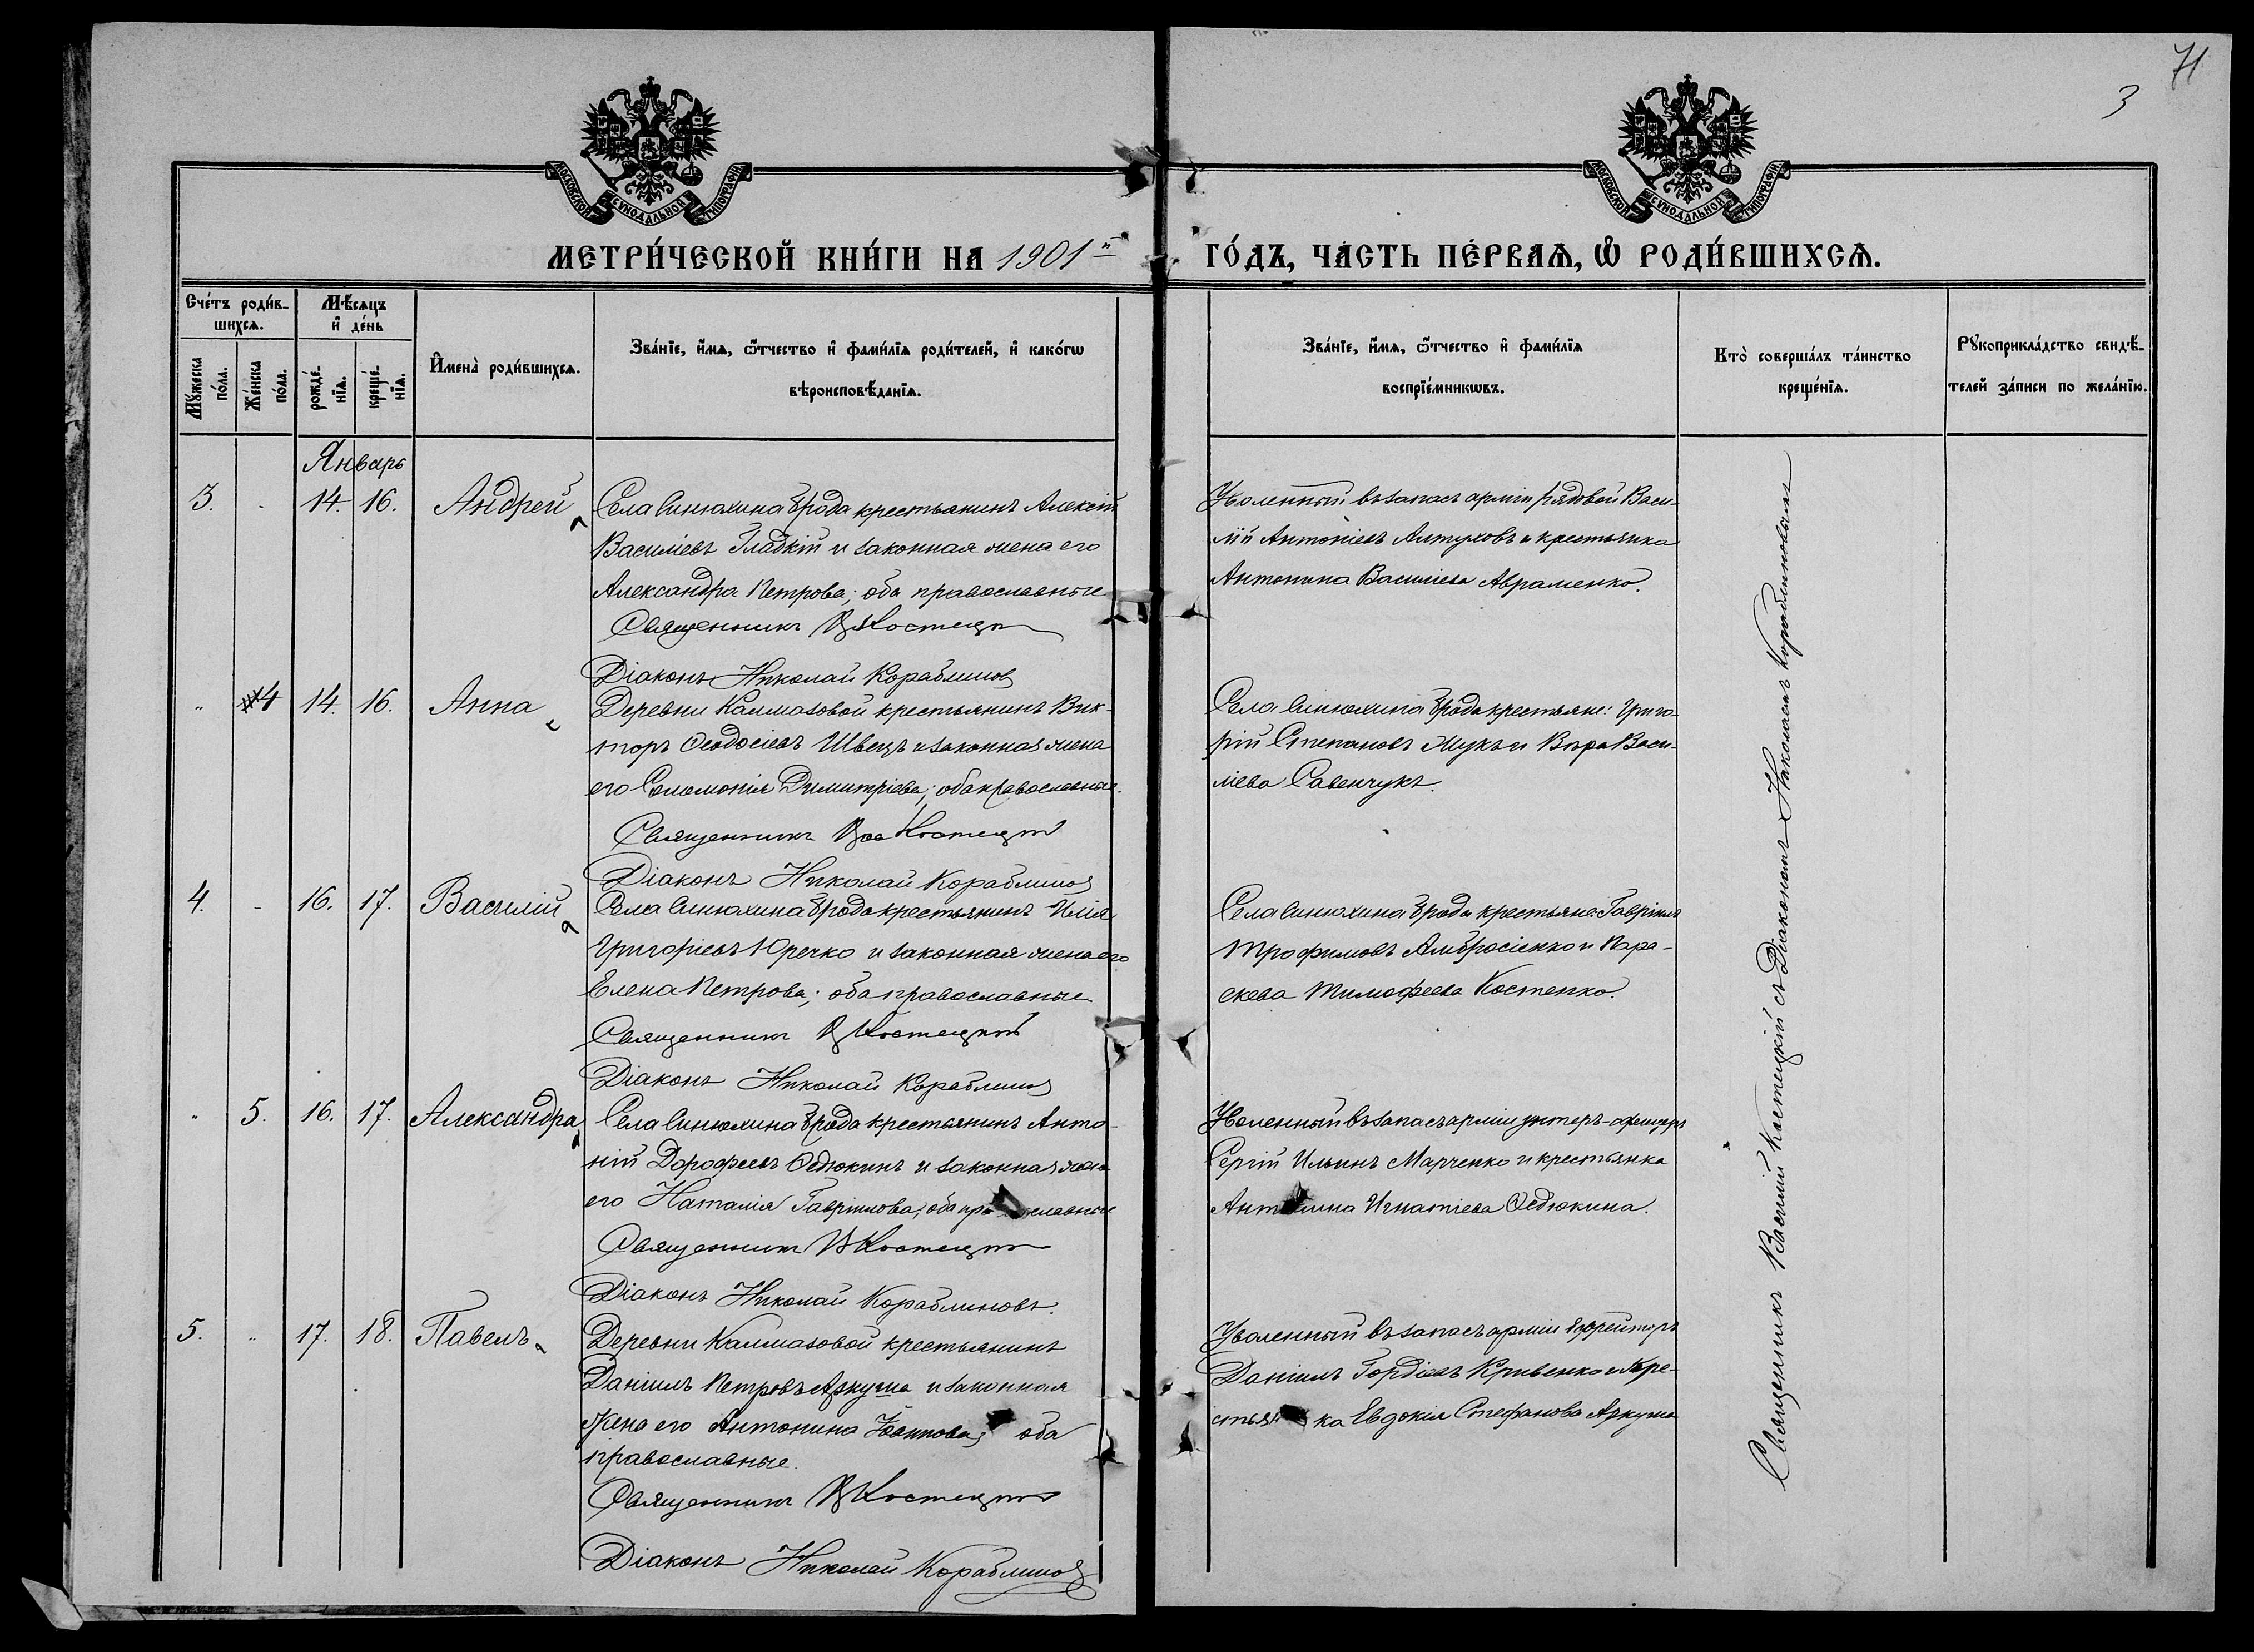 71
3
МОСКОВСКОЙ СѴНОДАЛЬНОЙ ТИПОГРАФІИ
МОСКОВСКОЙ СѴНОДАЛЬНОЙ ТИПОГРАФІИ
МЕТРИ́ЧЕСКОЙ КНИ́ГИ НА 1901й ГО́ДЪ, ЧА́СТЬ ПЕ́РВАѦ, Ѽ РОДИ́ВШИХСѦ.
Сче́тъ роди́в-
шихсѧ.
Мꙋ́жеска по́ла.
Же́нска по́ла.
Мѣ́сѧцъ
и҆ де́нь
рожде́-
нїѧ.
креще́-
нїѧ.
И҆мена̀ роди́вшихсѧ.
Зва́нїе, и҆́мѧ, ѻ҆́тчество и҆ фами́лїѧ роди́телей, и҆ како́гѡ
вѣроисповѣ́данїѧ.
Зва́нїе, и҆́мѧ, ѻ҆́тчество и҆ фами́лїѧ
воспрїе́мникѡвъ.
Кто̀ соверша́лъ та́инство
креще́нїѧ.
Рꙋкоприкла́дство свидѣ́-
телей за́писи по жела́нїю.
Январь
3. 14. 16. Андрей
Села Синюхина Брода крестьянинъ Алексій
Василіевъ Гладкій и законная жена его
Александра Петрова; оба православные
Священникъ В Костецкій
Діаконъ Николай Кораблинов
Уволенный въ запасъ арміи рядовой Васи-
лій Антоніевъ Алтуховъ и крестьянка
Антонина Василіева Авраменко.
" 4 14. 16. Анна
Деревни Калмазовой крестьянинъ Вик-
торъ Ѳеодосіевъ Швецъ и законная жена
его Соломонія Димитріева; оба православные.
Священникъ Вас Костецкій
Діаконъ Николай Кораблинов
Села Синюхина Брода крестьяне: Григо-
рій Степановъ Мукъ и Вѣра Васи-
ліева Савенчукъ.
4. - 16. 17. Василій
Села Синюхина Брода крестьянинъ Илія
Григоріевъ Юречко и законная жена его
Елена Петрова; оба православные.
Священникъ В Костецкій
Діаконъ Николай Кораблинов
Села Синюхина Брода крестьяне: Гавріилъ
Трофимовъ Амбросіенко и Пара-
скева Тимофеева Костенко.
" 5. 16. 17. Александра
Села Синюхина Брода крестьянинъ Анто-
ній Дорофеевъ Ѳедюкинъ и законная жена
его Наталія Гавріилова; оба пра славные
Священникъ В Костецкій
Діаконъ Николай Кораблиновъ.
Уволенный въ запасъ арміи унтеръ-офицеръ
Сергій Ильинъ Марченко и крестьянка
Антонина Игнатіева Ѳедюкина.
5. " 17. 18. Павелъ
Деревни Калмазовой крестьянинъ
Даніилъ Петровъ Аркуша и законная
жена его Антонина Іоаннова; оба
православные.
Священникъ В Костецкій
Діаконъ Николай Кораблинов
Уволенный въ запасъ арміи Ефрейторъ
Даніилъ Гордіевъ Кривенко и кре-
стьян ка Евдокія Стефанова Аркуша
Священникъ Василій Костецкій съ Діакономъ Николаемъ Кораблиновымъ